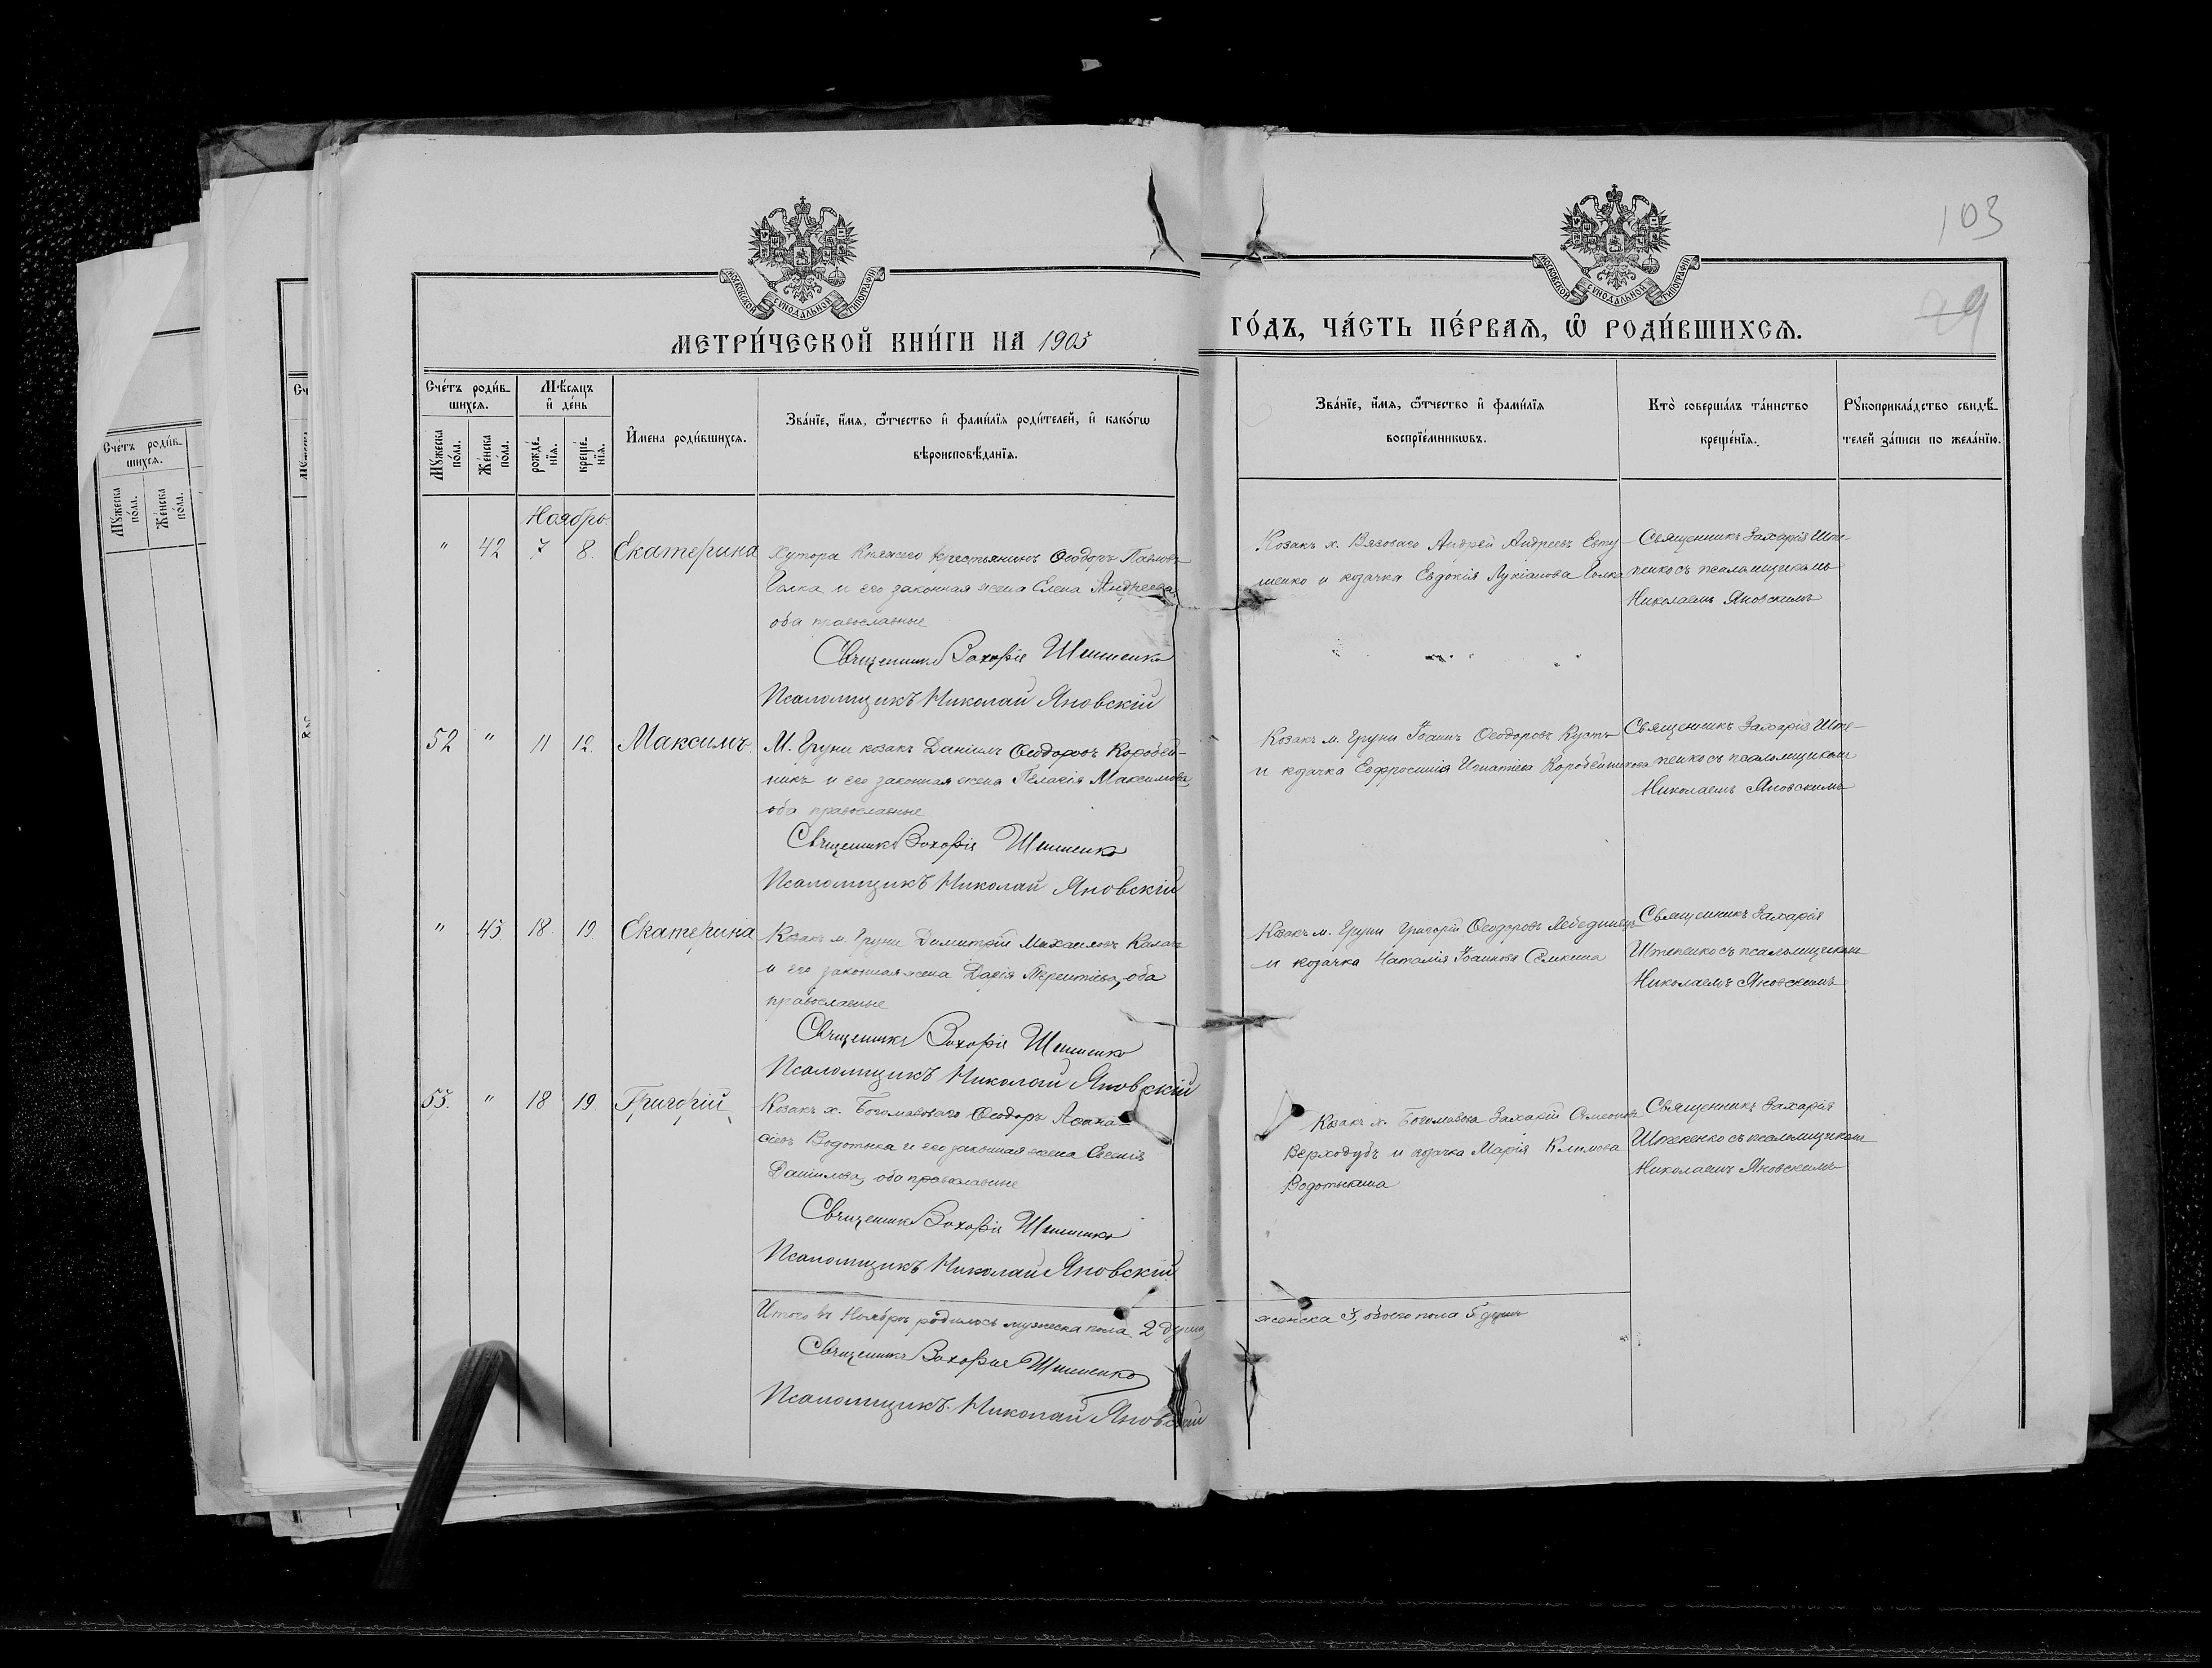 103
29
МОСКОВСКОЙ СУНОДАЛЬНОЙ ТИПОГРАФІИ
МОСКОВСКОЙ СУНОДАЛЬНОЙ ТИПОГРАФІИ
МЕТРИ́ЧЕСКОЙ КНИ́ГИ НА 1905
ГО́ДЪ, ЧА́СТЬ ПЕ́РВАЯ, Ѡ РОДИ́ВШИХСЯ.
Сче́тъ роди́в-
шихся.
Мѣ́сяцъ
и҆ де́нь
Мꙋ́жеска
по́ла.
Же́нска
по́ла.
рожде́-
нїя.
креще́-
нїя.
И҆мена роди́вшихся.
Зва́нїе, и҆́мя, ѻ҆́тчество и҆ фами́лїя роди́телей, и҆ како́гѡ
вѣроисповѣ́данїя.
Зва́нїе, и҆́мя, ѻ҆́тчество и҆ фами́лїя
воспрїе́мникѡвъ.
Кто̀ соверша́лъ та́инство
креще́нїя.
Рꙋкоприкла́дство свидѣ́-
телей за́писи по жела́нїю.
Ноябрь
" 42 7 8. Екатерина
Хутора Княжего крестьянинъ Ѳеодоръ Павловъ
Голка и его законная жена Елена Андреева,
оба православные
Священникъ Захарія Штепенко
Псаломщикъ Николай Яновскій
Козакъ х. Вязоваго Андрей Андреевъ Евту-
шенко и козачка Евдокія Лукіанова Голка
Священникъ Захарія Ште-
пенко съ псаломщикомъ
Николаемъ Яновскимъ
52 " 11 12. Максимъ
М. Груни козакъ Даніилъ Ѳеодоровъ Коробей-
никъ и его законная жена Пелагія Максимова
оба православные
Священникъ Захарія Штепенко
Псаломщикъ Николай Яновскій
Козакъ м. Груни Іоаннъ Ѳеодоровъ
и козачка Евфросинія Игнатіева Коробейникова
Священникъ Захарія Ште-
пенко съ псаломщикомъ
Николаемъ Яновскимъ
" 43. 18. 19. Екатерина
Козакъ м. Груни Димитрій Михаиловъ
и его законная жена Дарія Терентіева, оба
православные
Священникъ Захарія Штепенко
Псаломщикъ Николай Яновскій
Козакъ м. Груни Григорій Ѳеодоровъ Лебединецъ
и козачка Наталія Іоаннова
Священникъ Захарія
Штепенко съ псаломщикомъ
Николаемъ Яновскимъ
53. " 18 19. Григорій
Козакъ х. Ѳеодоръ Аѳана-
сіевъ Водотыка и его законная жена Евгенія
Даніилова, оба православные
Священникъ Захарія Штепенко
Псаломщикъ Николай Яновскій
Козакъ х. Захарій Симеоновъ
Верходубъ и козачка Марія Климова
Водотыкина
Священникъ Захарія
Штепенко съ псаломщикомъ
Николаемъ Яновскимъ
Итого въ Ноябрѣ родилось мужеска пола 2 души,
женска 3, обоего пола 5 душъ
Священникъ Захарія Штепенко
Псаломщикъ Николай Яновскій
Сче́тъ роди́в-
шихся.
Мꙋ́жеска
по́ла.
Же́нска
по́ла.